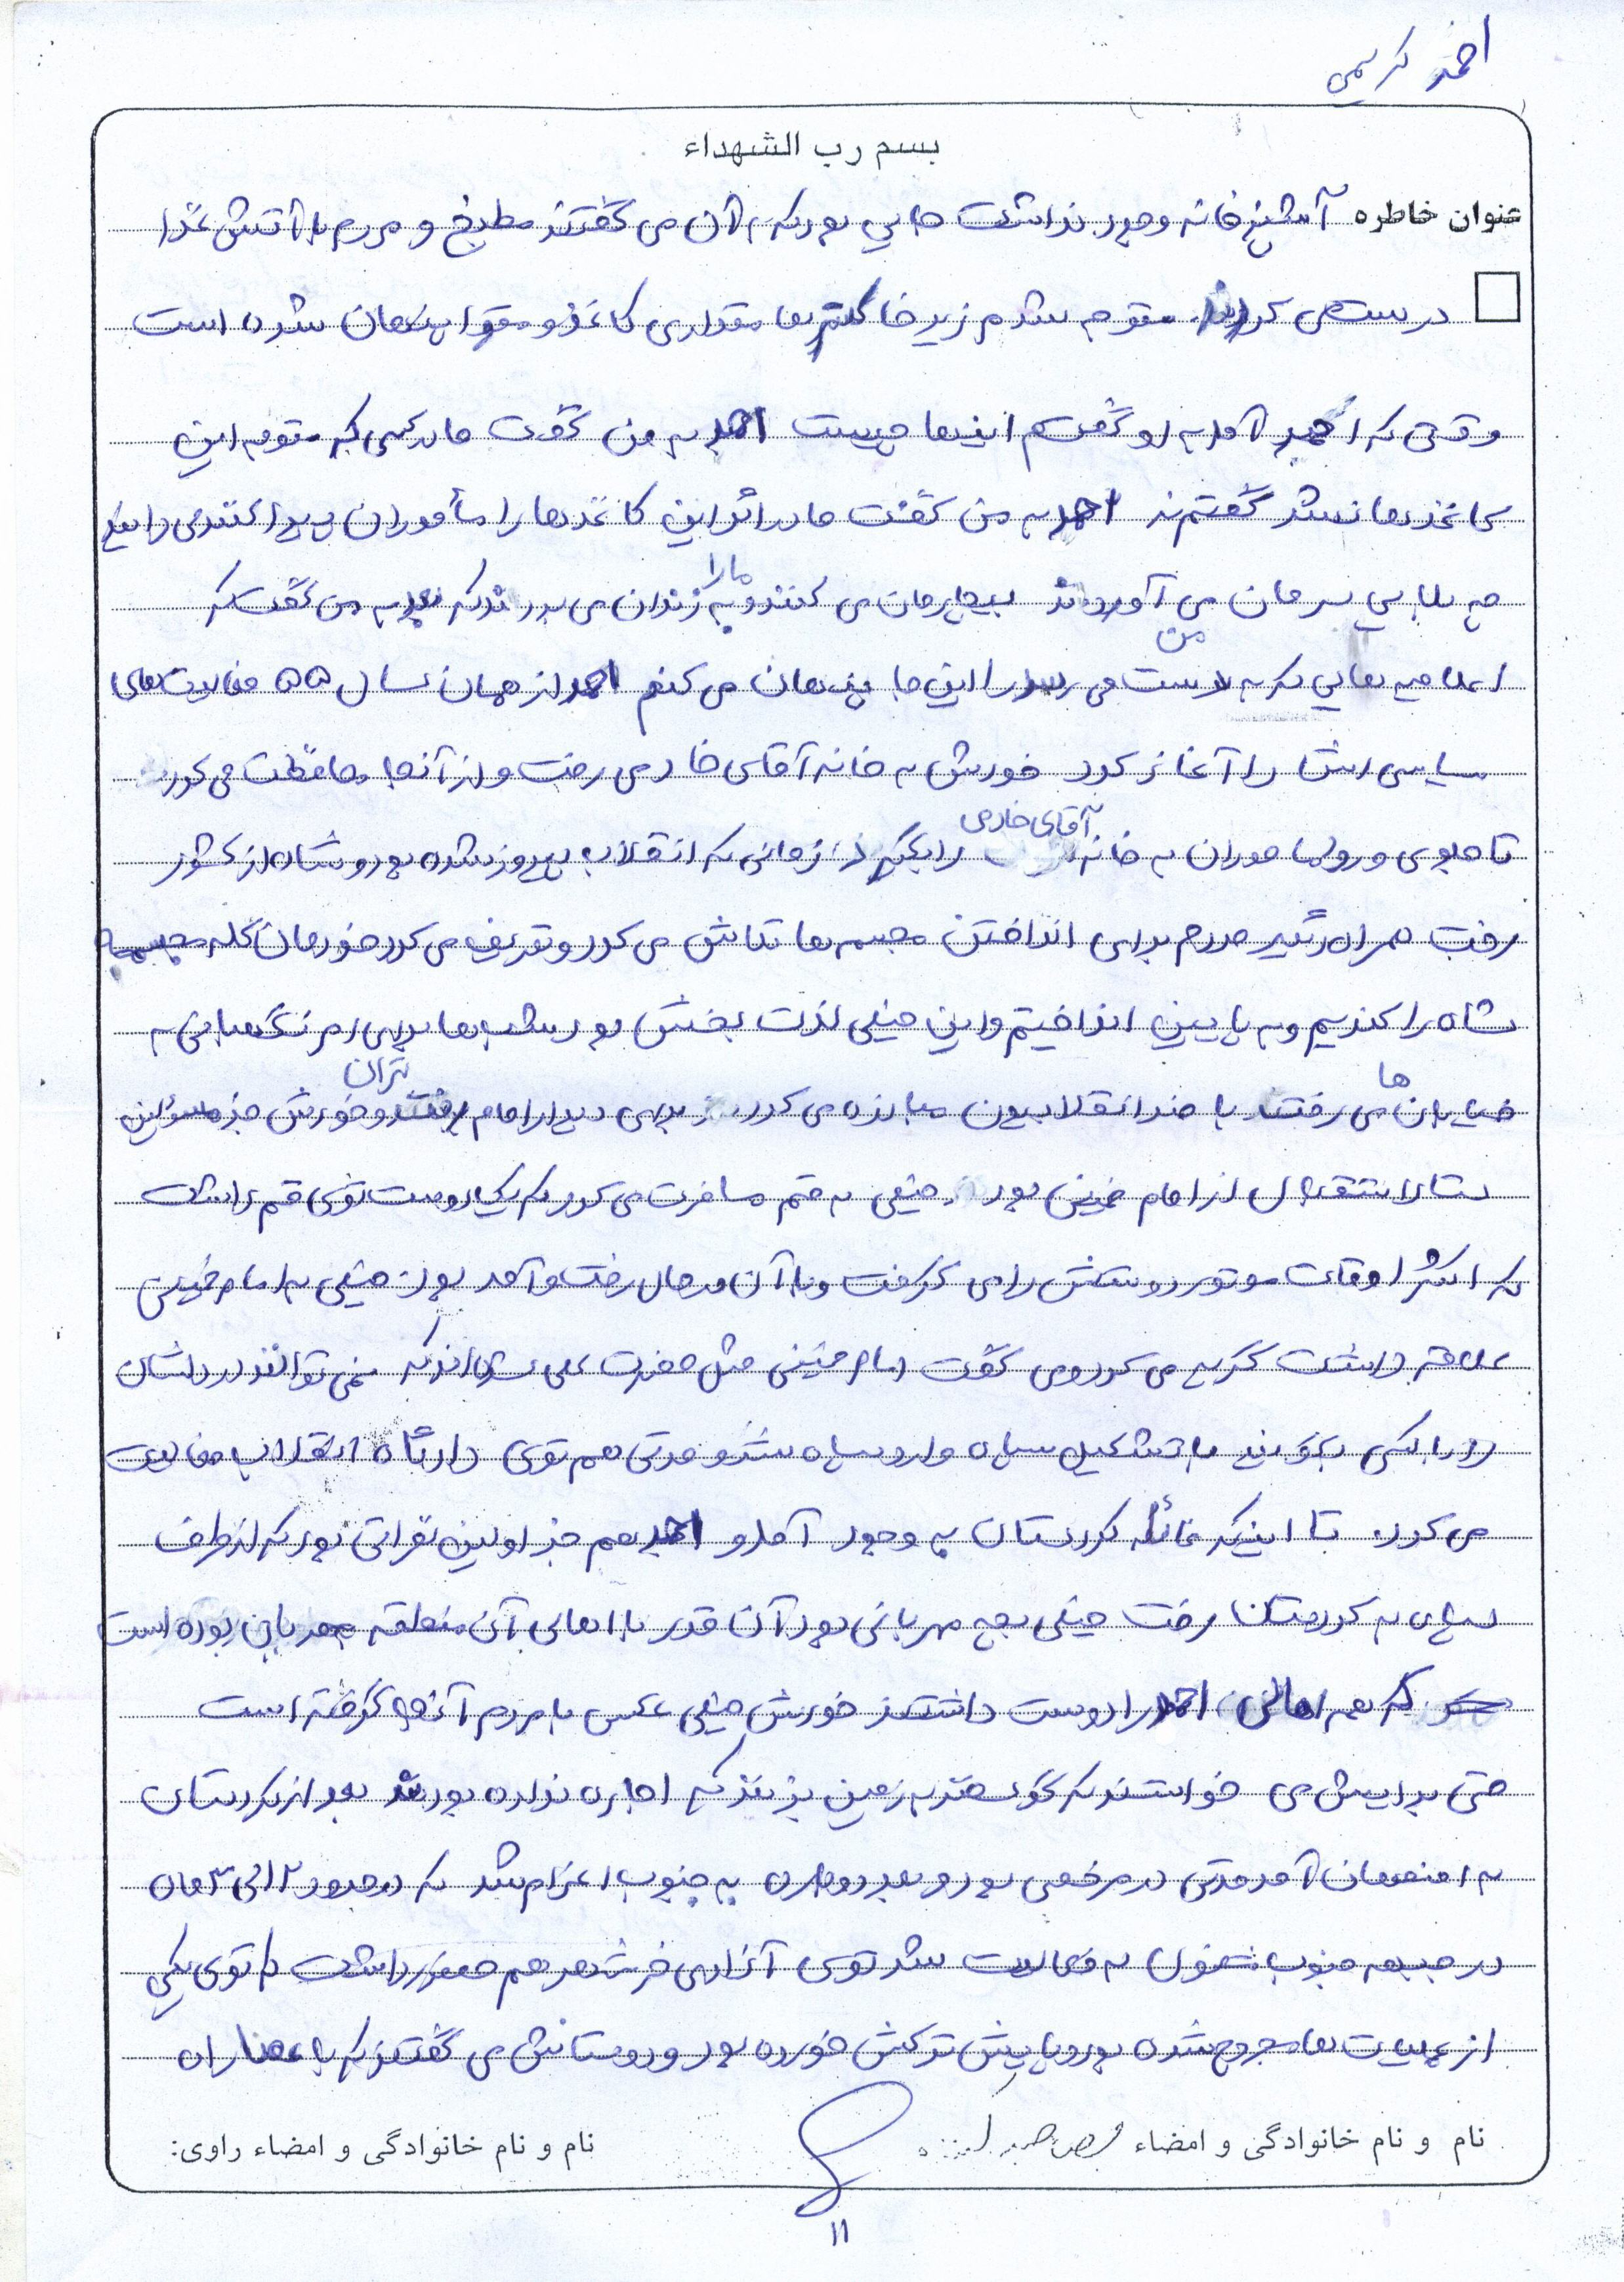 احمد کریمی
بسم رب الشهداء
عنوان خاطره آشپزخانه وجود نداشت جایی بود که به آن می گفتند مطبخ و مردم با آتش غذا
درست می کردند. متوجه شدم زیر خاکسترها مقداری کاغذ و مقوا پنهان شده است
وقتی که احمد آمد به او گفتم اینها چیست احمد به من گفت مادر کسی که متوجه این
کاغذها نشد گفتم نه احمد به من گفت مادر اگر این کاغذها را مأموران پیدا کنند می دانید
چه بلایی سرمان می آورند بیچارمان می کنند و ما را به زندان می برند که بعد به من گفت که
اعلامیه هایی که به دست من می رسد را این جا پنهان می کنم احمد از همان سال ۵۵ فعالیت های
سیاسی اش را آغاز کرد خودش به خانه آقای خادمی رفت و از آنجا محافظت می کرد
تا جلوی ورود ماموران به خانه آقای خادمی را بگیرد. زمانی که انقلاب پیروز شده بود و شاه از کشور
رفت همراه دیگر مردم برای انداختن مجسمه ها تلاش می کرد و تعریف می کرد خودمان کله مجسمه
شاه را کندیم و به پایین انداختیم و این خیلی لذت بخش بود شب ها برای امر نگهبانی به
خیابان ها می رفتند با ضد انقلابیون مبارزه می کرد برای دیدار امام تهران رفتند و خودش جز مسئولین
ستاد استقبال از امام خمینی بود خیلی به قم مسافرت می کرد که یک دوست توی قم داشت
که اکثر اوقات موتور دوستش را می گرفت و با آن در حال رفت و آمد بود. خیلی به امام خمینی
علاقه داشت گریه می کرد و می گفت امام خمینی مثل حضرت علی اند که نمی توانند درد دلشان
را با کسی بگویند با تشکیل سپاه وارد سپاه شد و مدتی هم توی دادگاه انقلاب فعالیت
می کرد. تا اینکه غائله کردستان به وجود آمد و احمد هم جز اولین نفراتی بود که از طرف
سپاه به کردستان رفت خیلی بچه مهربانی بود آن قدر با اهالی آن منطقه مهربان بوده است
که همه اهالی احمد را دوست داشتند خودش خیلی عکس با مردم آنجا گرفته است
حتی برایش می خواستند که گوسفند به زمین بزنند که اجازه نداده بودند بعد از کردستان
به اصفهان آمد مدتی در مرخصی بود و بعد دوباره به جنوب اعزام شد که در حدود ۲ الی ۳ ماه
در جبهه جنوب مشغول به فعالیت شد توی آزادی خرمشهر هم حضور داشت که توی یکی
از عملیات ها مجروح شده بود و پایش ترکش خورده بود و دوستانش می گفتند که با عصا راه
نام و نام خانوادگی و امضاء
نام و نام خانوادگی و امضاء راوی:
۱۱